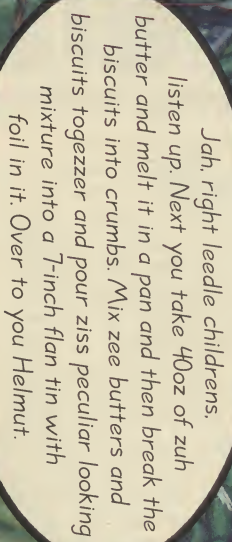 Jah, right leedle childrens,
listen up. Next you take 40oz of zuh
butter and melt it in a pan and then break the
biscuits into crumbs. Mix zee butters and
biscuits togezzer and pour ziss peculiar looking
mixture into a 7-inch flan tin with
foil in it. Over to you Helmut.